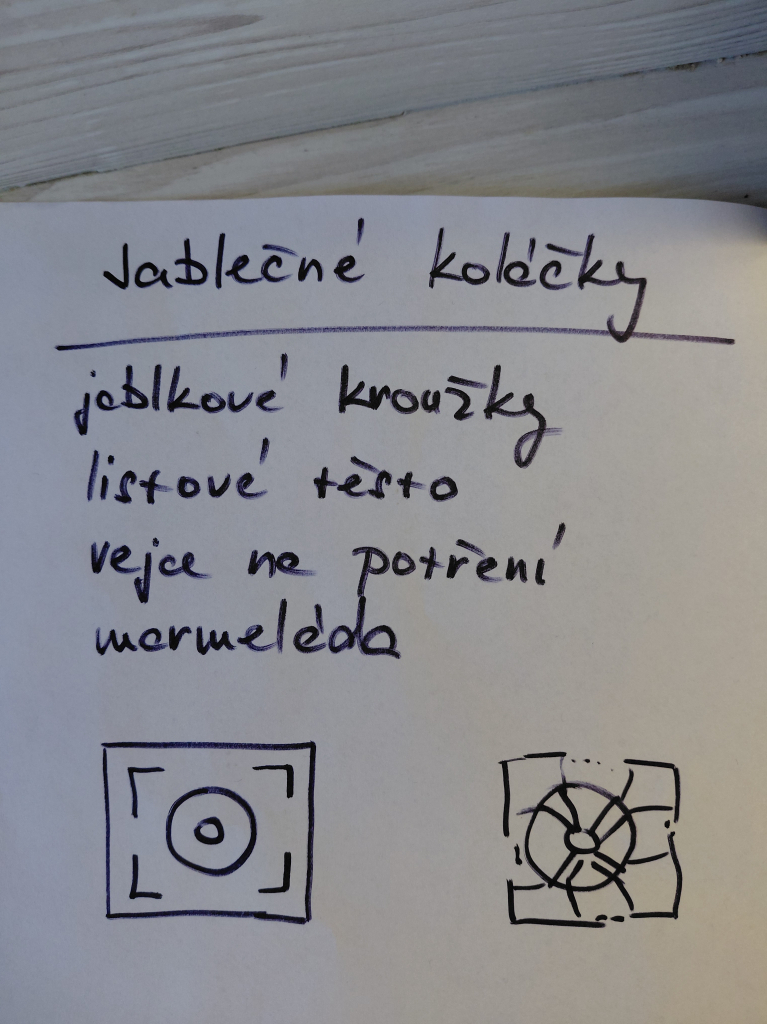 Jablečné koláčky
jablkové kroužky
listové těsto
vejce na potření
marmeláda